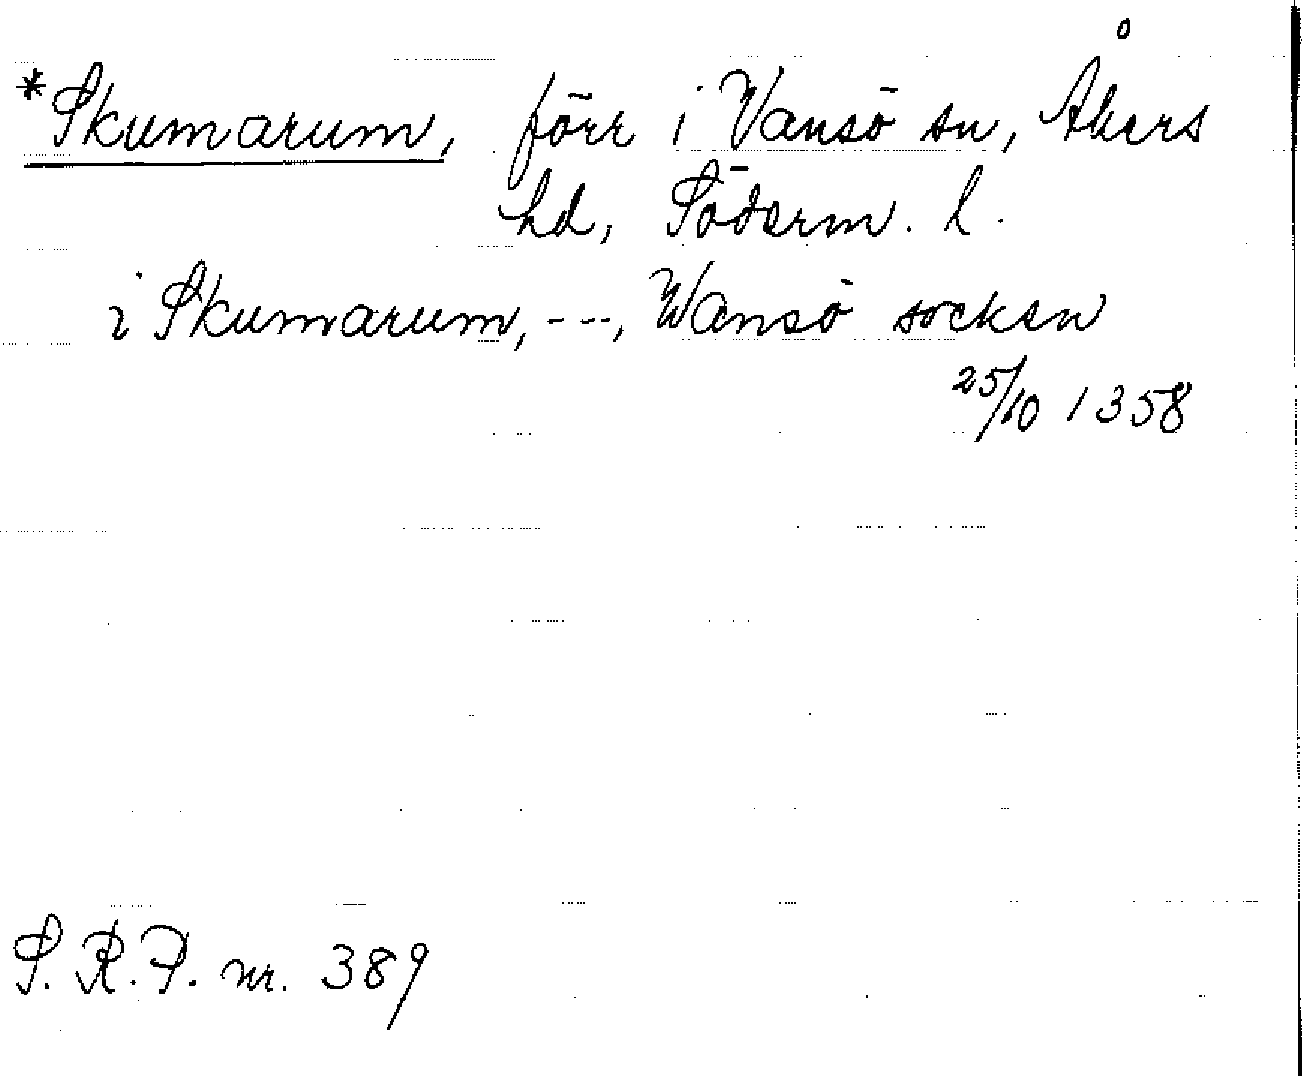 *Skumarum, förr i Vansö sn, Åkers
hd, Söderm. l.
i Skumarum, ---, Wansö socken
25/10 1358
S. R. P. nr. 389